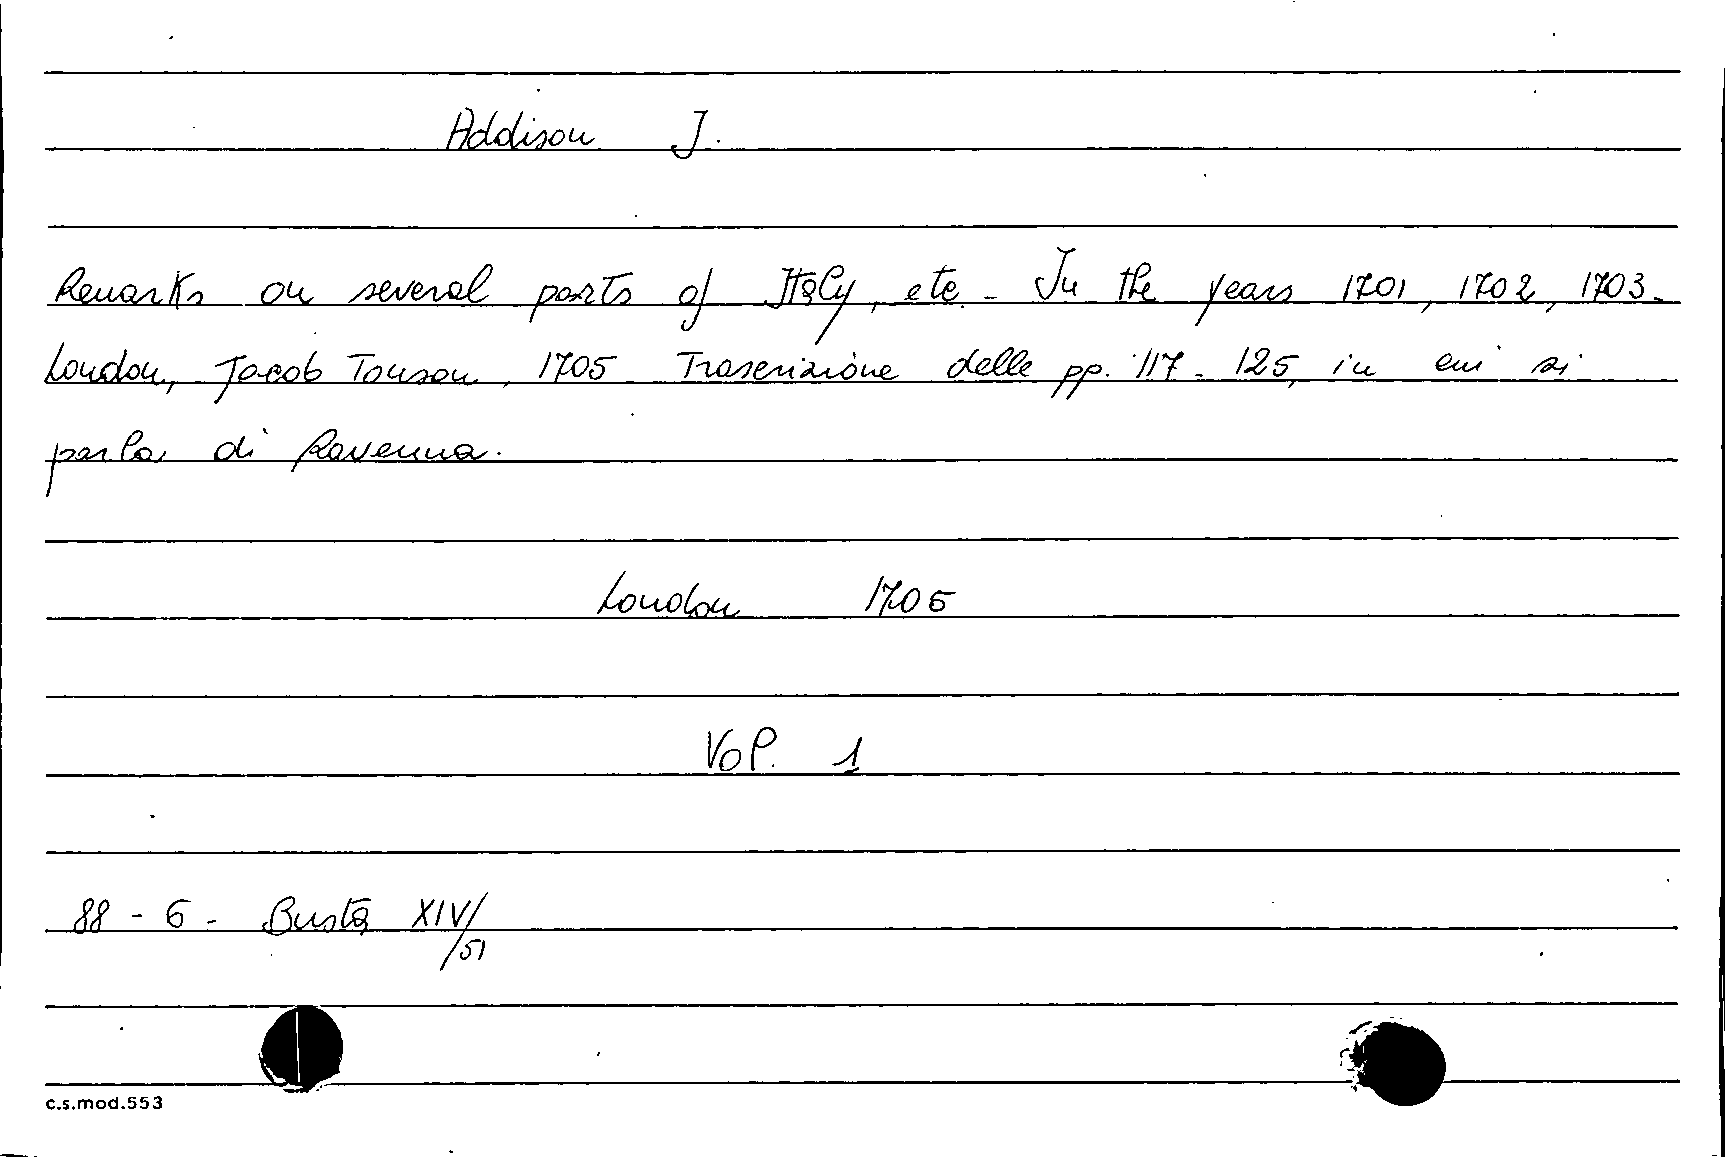 Addison J.
Remarks on several parts of Italy, etc. - In the years 1701, 1702, 1703.
London, Jacob Tonson, 1705. Trascrizione delle pp. 117 - 125, in cui si
parla di Ravenna.
London 1705
Vol. 1
88 - 6 - Busta XIV/
/51
c.s.mod.553